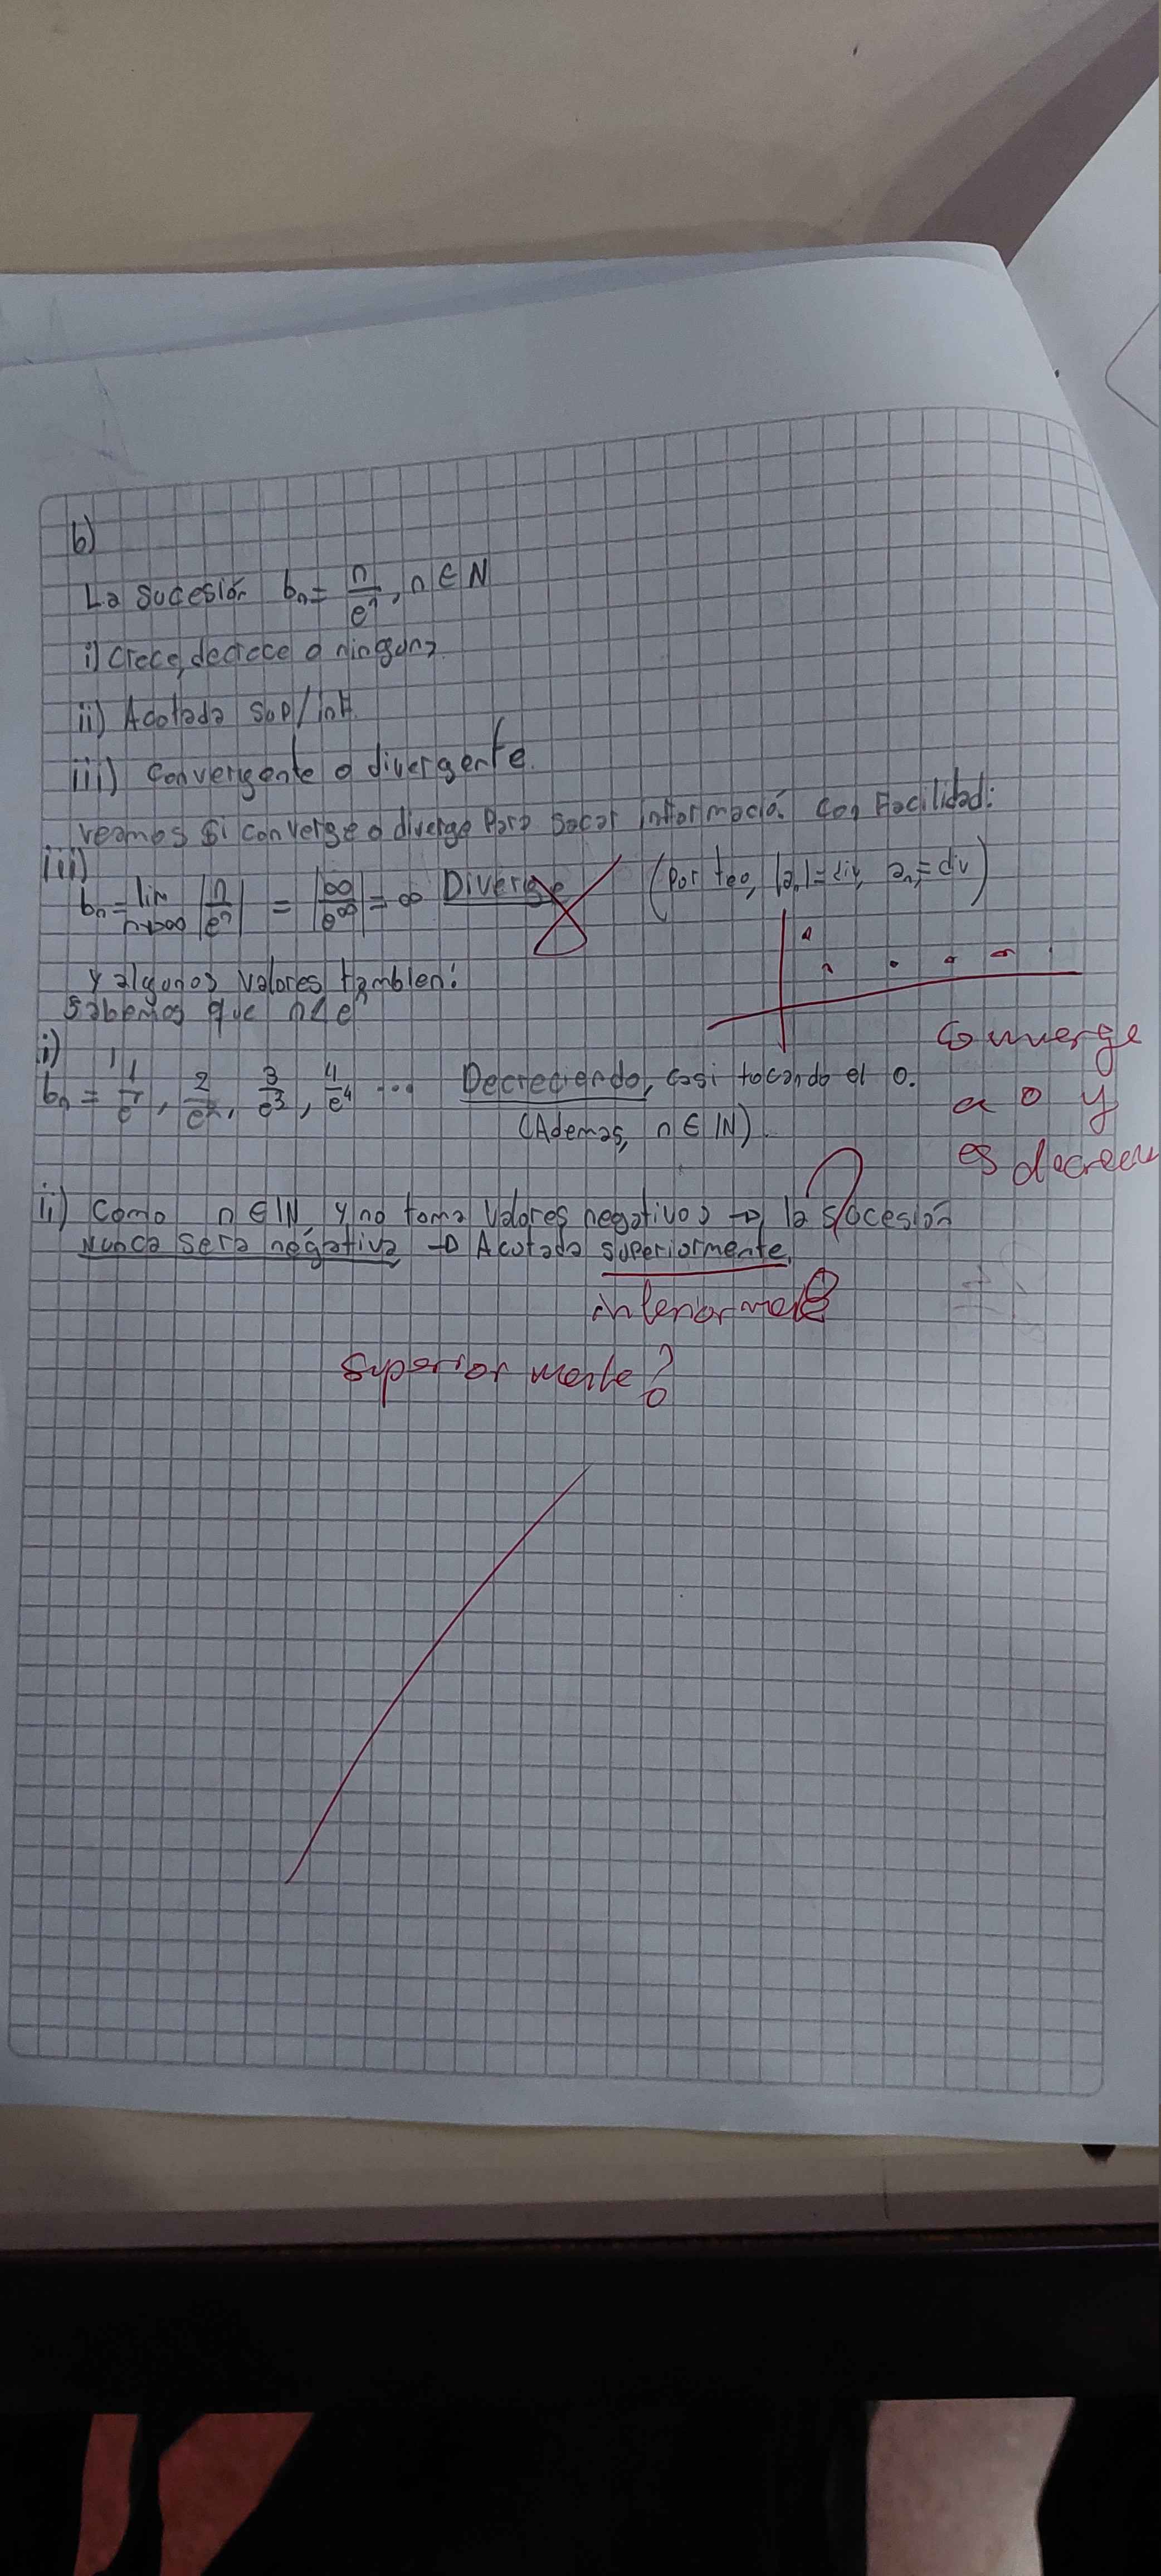 b)
La sucesión bn = n/e^n, n ∈ N
i) Crece, decrece o ninguna.
ii) Acotada sup/inf.
iii) Convergente o divergente.
veamos si converge o diverge para sacar información con facilidad:
iii)
bn = lim n→∞ |n/e^n| = |∞/e^∞| = ∞ Diverge (por teo, |an| = div, an = div)
y algunos valores tambien:
sabemos que n < e^n
i)
bn = 1/e^1, 2/e^2, 3/e^3, 4/e^4 ... Decreciendo, casi tocando el 0.
(Ademas, n ∈ IN).
Converge
a 0 y
es decrecie
ii) Como n ∈ IN, y no toma valores negativos → la sucesión
Nunca sera negativa → Acotada superiormente.
inferiormente
superiormente?